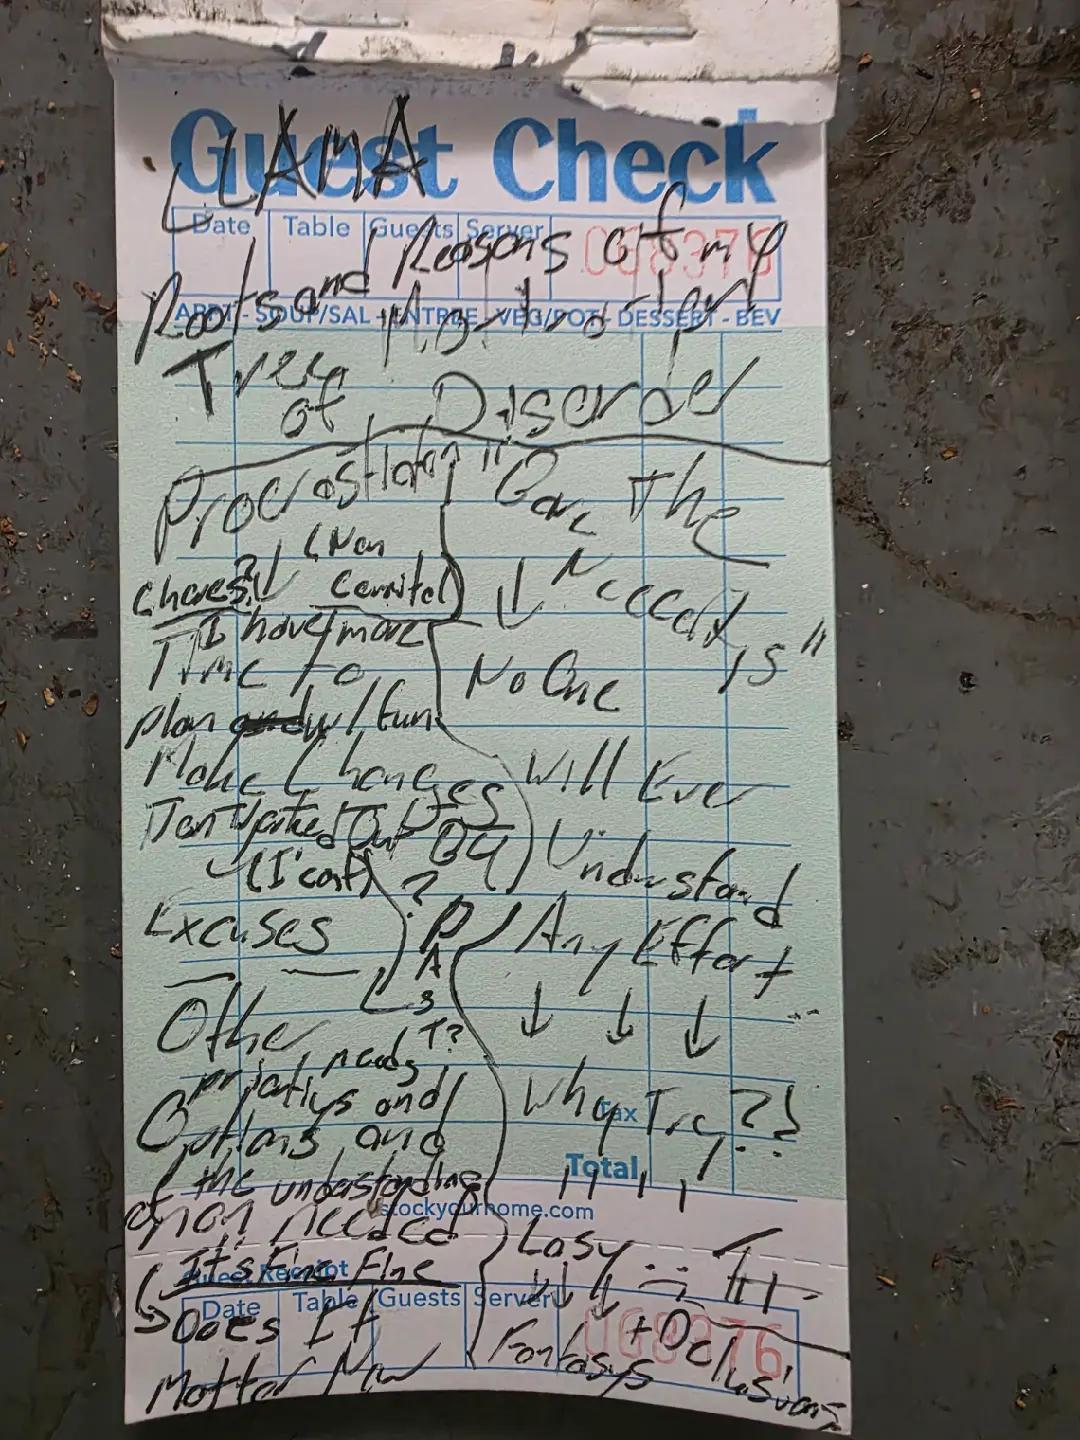 Guest Check
LLAMA
Date Table Guests Server
068376
Roots and Reasons of my
APPT - SOUP/SAL - ENTREE - VEG/POT - DESSERT - BEV
Tree
of Disorder
"Bare The
Neccecitys"
(Non
chores?
I have more
Time To
plan w/ fun
Make Changes
(I can't)
Excuses
?
PAST?
Other
needs
and
Options and
of the understanding
needed
It's Fine Fine
Does It
Matter Now
No One
Will Ever
Understand
Any Effort
Why Try?!
Tax
Total
stockyourhome.com
Lazy
Guest Receipt
Date Table Guests Server
068376
Fantasys
+ Dellusions